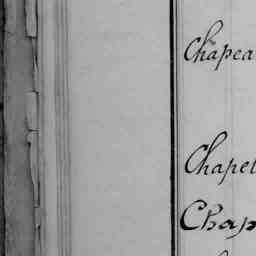 Chapea
Chapel
Chap